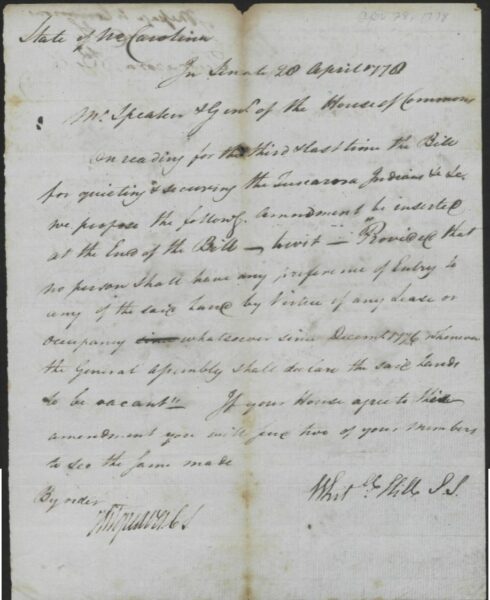 Apr 28, 1778
State of No Carolina
In Senate 28 April 1778
Mr. Speaker & Genl. of the House of Commons
On reading for the third & last time the Bill
for quieting & securing the Tuscarora Indians &c &c.
we propose the followg. Amendment be inserted
at the End of the Bill — towit — "Provided that
no person shall have any preference of Entry to
any of the said Land by Virtue of any Lease or
occupancy whatsoever since Decemr. 1776 whenever
the General Assembly shall declare the said Lands
to be vacant" If your House agree to this
amendment you will send two of your Members
to see the same made
By order
Whitl. Hill S.S.